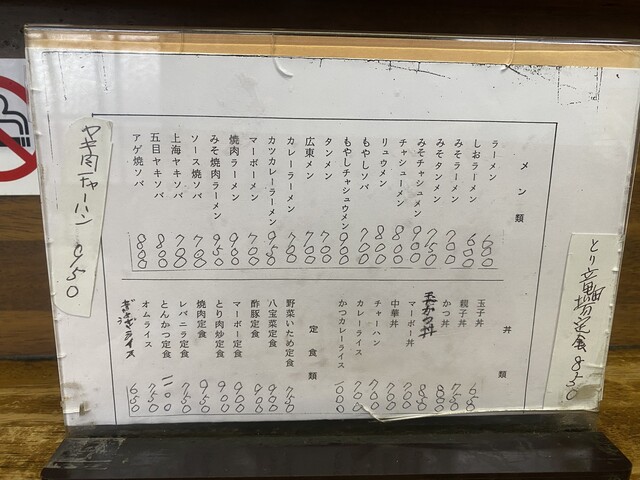 とり竜田揚定食 850
メン類
ラーメン 600
しおラーメン 600
みそラーメン 700
みそタンメン 750
みそチャシュメン 900
チャシューメン 800
リュウメン 800
もやしソバ 700
もやしチャシュウメン 900
タンメン 700
広東メン 700
カレーラーメン 700
カツカレーラーメン 950
マーボーメン 700
焼肉ラーメン 900
みそ焼肉ラーメン 950
ソース焼ソバ 700
上海ヤキソバ 700
五目ヤキソバ 800
アゲ焼ソバ 800
丼類
玉子丼 650
親子丼 750
かつ丼 800
マーボー丼
中華丼 700
チャーハン 700
カレーライス 700
かつカレーライス 1000
定食類
野菜いため定食 750
八宝菜定食 900
酢豚定食 900
マーボー定食 900
とり肉炒定食 900
焼肉定食 950
レバニラ定食 750
とんかつ定食 1100
オムライス 750
ヤキ肉チャーハン 950